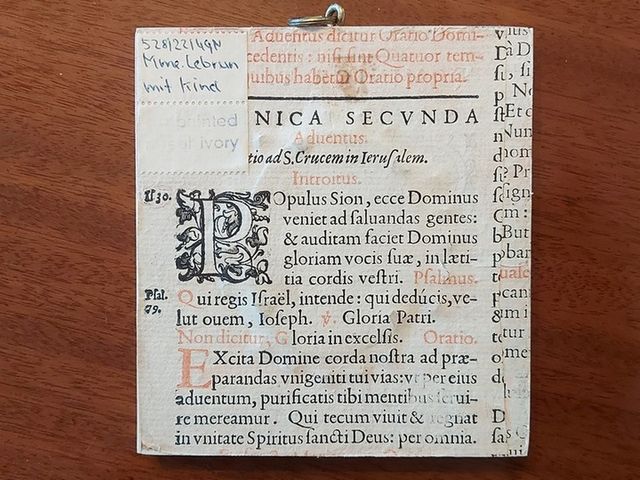 528/22/49N
Mme. Lebrun
mit Kind
painted
ivory
Aduentus dicitur Oratio Domi-
cedentis : nisi sint Quatuor tem-
quibus habetur Oratio propria.
NICA SECVNDA
Aduentus.
tio ad S. Crucem in Ierusalem.
Introitus.
Is 30.
POpulus Sion, ecce Dominus
veniet ad saluandas gentes:
& auditam faciet Dominus
gloriam vocis suæ, in læti-
tia cordis vestri. Psalmus.
Psal. 79.
Qui regis Israël, intende : qui dedúcis, ve-
lut ouem, Ioseph. ℣. Gloria Patri.
Non dicitur, Gloria in excelsis. Oratio.
EXcita Domine corda nostra ad præ-
parandas vnigeniti tui vias: vt per eius
aduentum, purificatis tibi mentibus serui-
re mereamur. Qui tecum viuit & regnat
in vnitate Spiritus sancti Deus: per omnia.